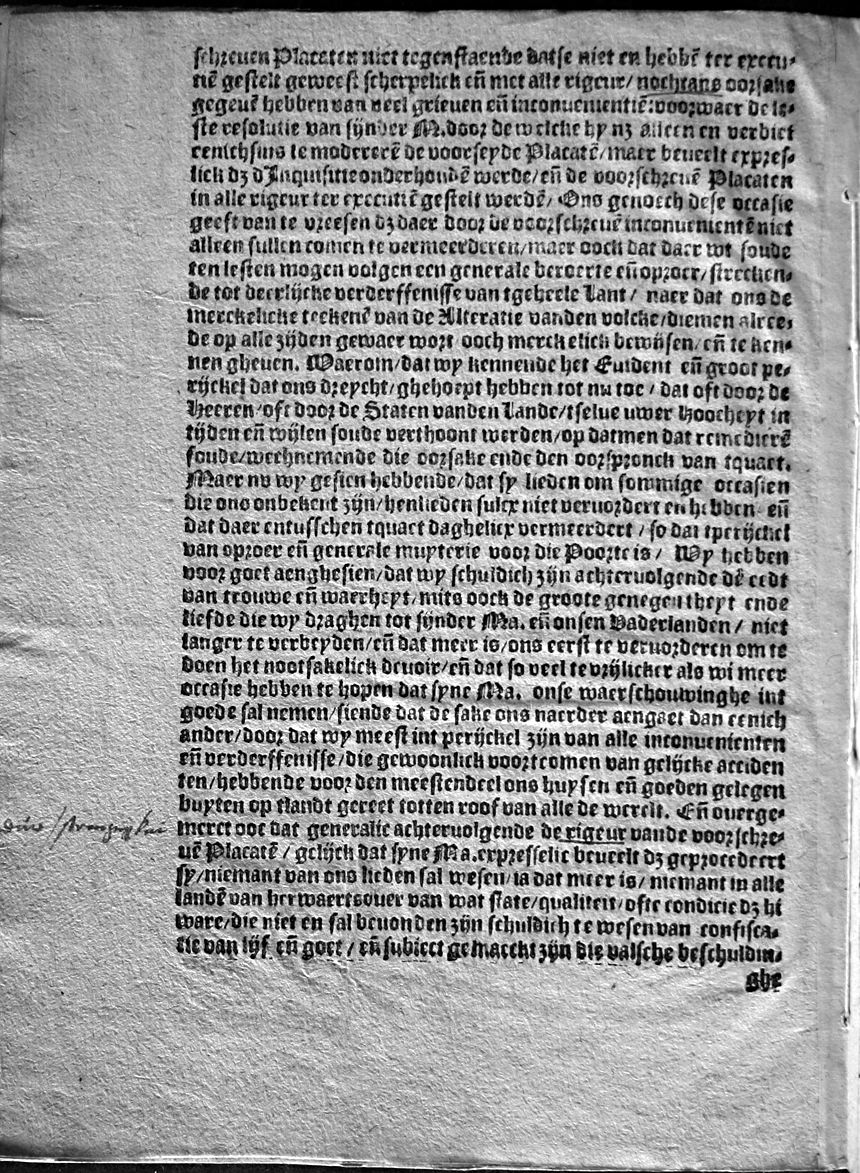 schreuen Placaten niet tegenstaende datse niet en hebbē ter execu⸗
tiē gestelt geweest scherpelick eñ met alle rigeur/ nochtans oorsake
gegeuē hebben van veel grieuen eñ inconuenientiē: voorwaer de le⸗
ste resolutie van sijnder M. door de welcke hy nz alleen en verbiet
eenichsins te modererē de voorseyde Placatē/ maer beueelt expres⸗
lick dz d'Inquisitie onderhoudē werde/ eñ de voorschreuē Placaten
in alle rigeur ter executiē gestelt werdē/ Ons genoech dese occasie
geeft van te vreesen dz daer door de voorschreuē inconuenientē niet
alleen sullen comen te vermeerderen/ maer oock dat daer wt soude
ten lesten mogen volgen een generale beroerte eñ oproer/ strecken⸗
de tot deerlijcke verderffenisse van tgeheele Lant/ naer dat ons de
merckelicke teekenē van de Alteratie vanden volcke/ diemen alree⸗
de op alle zijden gewaer wort ooch merckelick bewijsen/ eñ te ken⸗
nen gheuen. Waerom/ dat wy kennende het Euident eñ groot pe⸗
rijckel dat ons dreycht/ ghehoept hebben tot nu toe/ dat oft door de
Heeren/ oft door de Staten vanden Lande/ tselue uwer Hoocheyt in
tijden eñ wijlen soude verthoont werden/ op datmen dat remedierē
soude/ wechnemende die oorsake ende den oorspronck van tquaet.
Maer nu wy gesien hebbende/ dat sy lieden om sommige occasien
die ons onbekent zijn/ henlieden sulcx niet veruordert en hebben eñ
dat daer entusschen tquaet daghelicx vermeerdert/ so dat tperijckel
van oproer eñ generale muyterie voor die Poorte is/ Wy hebben
voor goet aenghesien/ dat wy schuldich zijn achtervolgende dē eedt
van trouwe eñ waerheyt/ mits oock de groote genegentheyt ende
liefde die wy draghen tot sijnder Ma. eñ onsen Vaderlanden/ niet
langer te verbeyden/ eñ dat meer is/ ons eerst te veruorderen om te
doen het nootsakelick deuoir/ eñ dat so veel te vrijlicker als wi meer
occasie hebben te hopen dat syne Ma. onse waerschouwinghe int
goede sal nemen/ siende dat de sake ons naerder aengaet dan eenich
ander/ door dat wy meest int perijckel zijn van alle inconuenienten
eñ verderffenisse/ die gewoonlick voortcomen van gelijcke acciden
ten/ hebbende voor den meestendeel ons huysen eñ goeden gelegen
buyten op tlandt gereet totten roof van alle de werelt. Eñ ouerge⸗
merct ooc dat generalic achtervolgende de rigeur vande voorschre⸗
uē Placatē/ gelijck dat syne Ma. expresselic beueelt dz geprocedeert
sy/ niemant van ons lieden sal wesen/ ia dat meer is/ niemant in alle
landē van herwaertsouer van wat state/ qualiteit/ ofte condicie dz hi
ware/ die niet en sal beuonden zijn schuldich te wesen van confisca⸗
tie van lijf eñ goet/ eñ subiect gemaeckt zijn die valsche beschuldin⸗
ghe